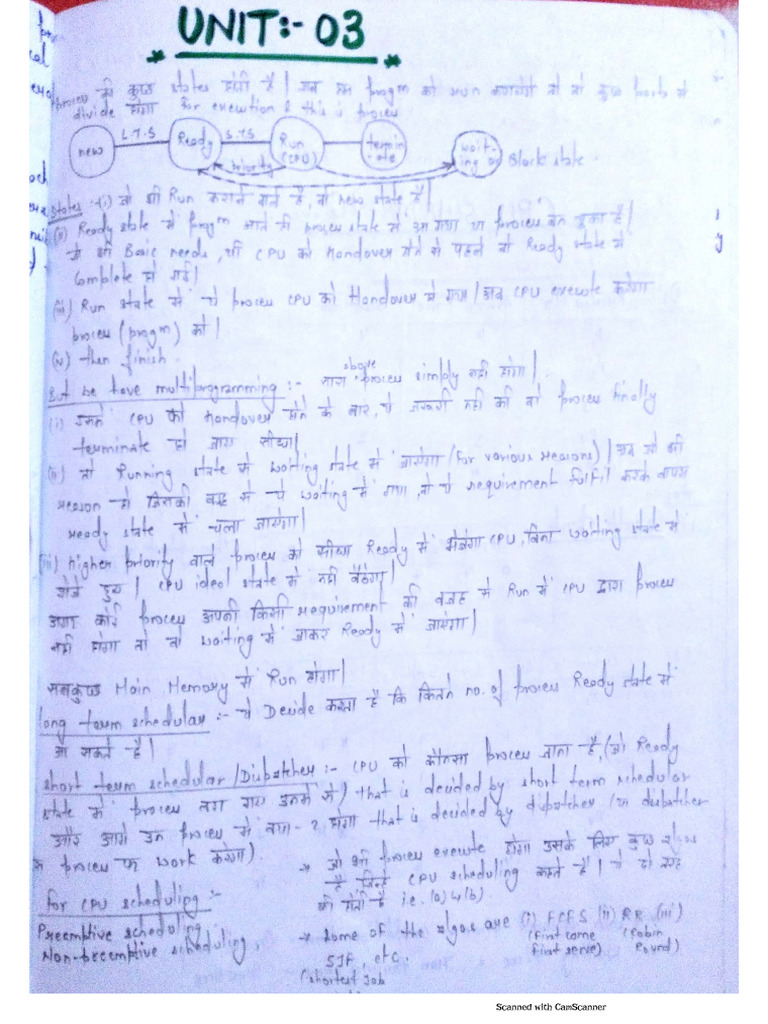 * UNIT:- 03 *
process की कुछ states होती है। जब हम progm को run करायेंगे तो वो कुछ parts में
divide होगा for execution & this is process
new L.T.S Ready S.T.S Run (CPU) termin-ate wait-ing or Block state
priority
States :- (i) जो भी Run कराने वाले है, वो new state है।
(ii) Ready state में progm आते ही process state में आ गया या process बन चुका है।
जो भी Basic needs, थी CPU को Handover होने से पहले वो Ready state में
Complete हो गई।
(iii) Run state में ये process CPU को Handover हो गया। अब CPU execute करेगा
process (progm) को।
(iv) then finish.
But be have multiprogramming :- सारा above process simply नहीं होगा।
(i) इसमें CPU को Handover होने के बाद, ये जरूरी नहीं की वो process finally
terminate हो जाए सीधा।
(ii) वो Running state से waiting state में जाएगा (for various reasons)। अब जो भी
reason हो जिसकी वजह से ये waiting में गया, वो ये requirement fulfil करके वापस
ready state में चला जाएगा।
(iii) Higher priority वाले process को सीधा Ready में भेजेगा CPU, बिना waiting state में
भेजे हुए। CPU ideal state में नहीं बैठेगा।
अगर कोई process अपनी किसी requirement की वजह से Run में CPU द्वारा process
नहीं होगा तो वो waiting में जाकर Ready में जाएगा।
सबकुछ Main Memory में Run होगा।
long term schedular :- ये Decide करता है कि कितने no. of process Ready state में
आ सकते है।
short term schedular / Disbatcher :- CPU को कौनसा process जाना है, (जो Ready
state में process लगा गए उनमें से) that is decided by short term schedular
और आगे उन process में होगा that is decided by disbatcher (
process work करेगा).
→ जो भी process execute होगा उसके लिए कुछ algos
है जिन्हें CPU scheduling कहते है। ये दो तरह
की होती है i.e. (a) & (b).
for CPU scheduling :-
Preemptive scheduling
Non-preemptive scheduling,
→ Some of the algos are (i) FCFS (ii) RR (iii)
(First come First serve) (Robin Round)
SJF, etc.
(shortest Job
Scanned with CamScanner